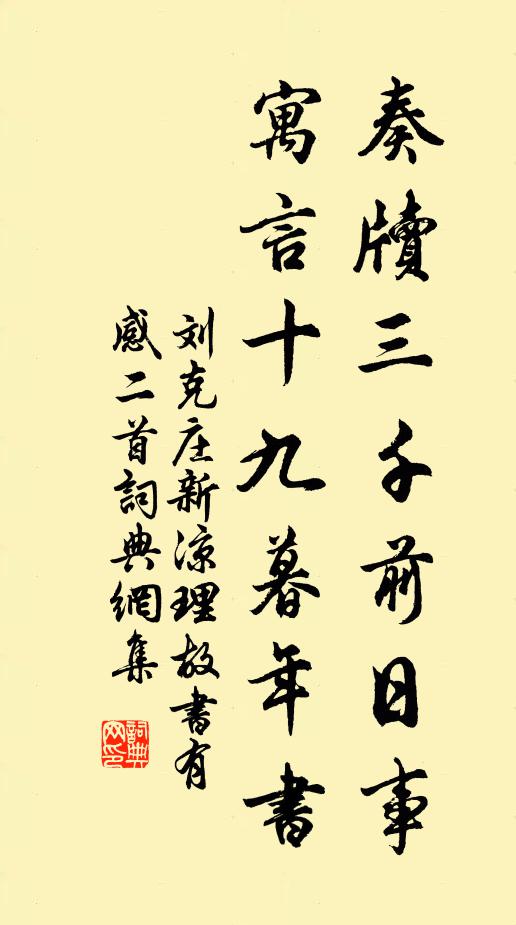 奏牘三千前日事
寓言十九暮年書
刘克庄新凉理故書有
感二首詞典網集
詞典網印